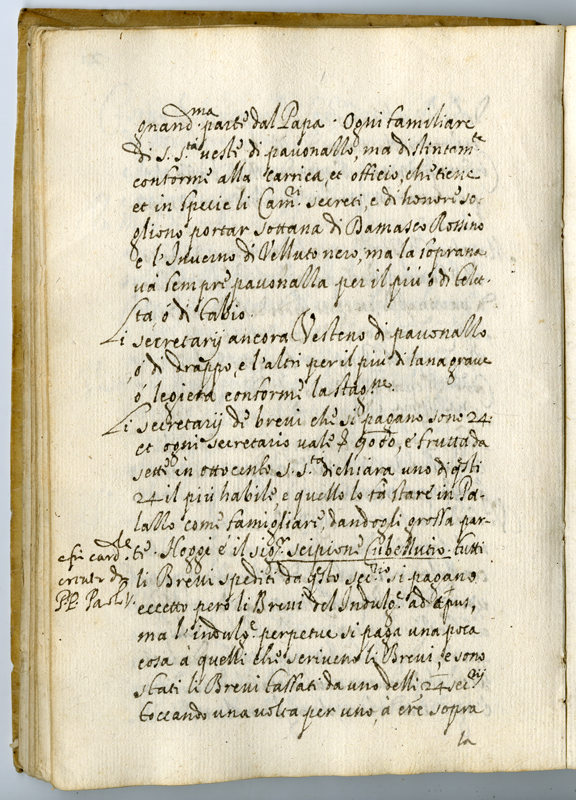 grand.ma parte dal Papa. Ogni familiare
di S. S.tà veste di pavonallo, ma distintam.te
conforme alla carrica, et officio, che tiene
et in specie li Cam.ri secreti, e di honore so-
gliono portar sottana di Damasco Rossino
e l'Inverno di Velluto nero, ma la soprana
và sempre pavonalla per il più ò di telet-
ta ò di tabio.
Li secretarij ancora Vesteno di pavonallo
ò di drappo, e l'altri per il più di lana grave
ò legiera conforme la stag.ne.
Li secretarij de brevi che si pagano sono 24.
et ogni secretario vale 9000, e frutta da
sette in ottocento S. S.tà dichiara uno di q.sti
24 il più habile e quello lo fa stare in Pa-
lazzo come famigliare, dandogli grossa par-
te. Hoggi è il sig.r Scipione Cubellutio. tutti
e fù card.le
creato da
P.P. Paolo V.
li Brevi spediti da q.sto sec.rio si pagano
eccetto però li Brevi del Indulg.e ad tempus,
ma l'indulg.e perpetue si paga una poca
cosa à quelli che scriveno li Brevi, e sono
stati li Brevi tassati da uno delli 24 sec.rij
toccando una volta per uno, à ere sopra
la